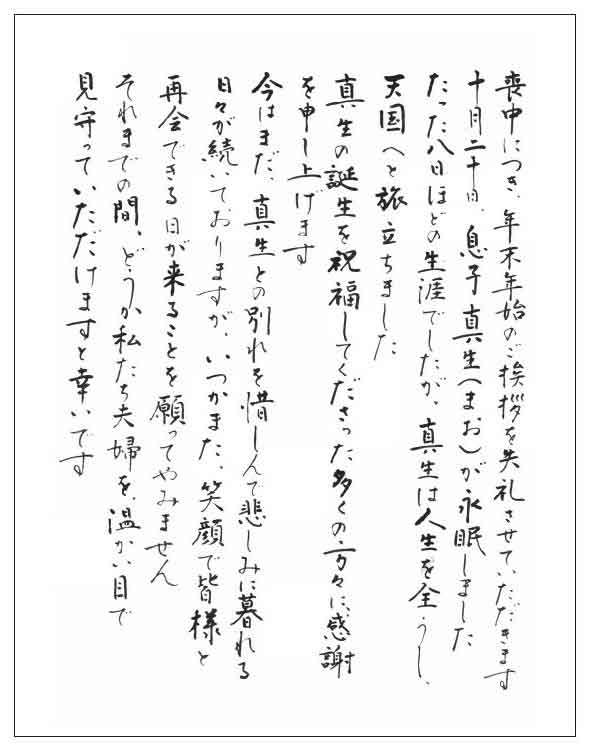 喪中につき、年末年始のご挨拶を失礼させていただきます
十月二十日、息子 真生(まお)が永眠しました
たった八日ほどの生涯でしたが、真生は人生を全うし、
天国へと旅立ちました
真生の誕生を祝福してくださった多くの方々に、感謝
を申し上げます
今はまだ、真生との別れを惜しんで悲しみに暮れる
日々が続いておりますが、いつかまた、笑顔で皆様と
再会できる日が来ることを願ってやみません
それまでの間、どうか私たち夫婦を、温かい目で
見守っていただけますと幸いです